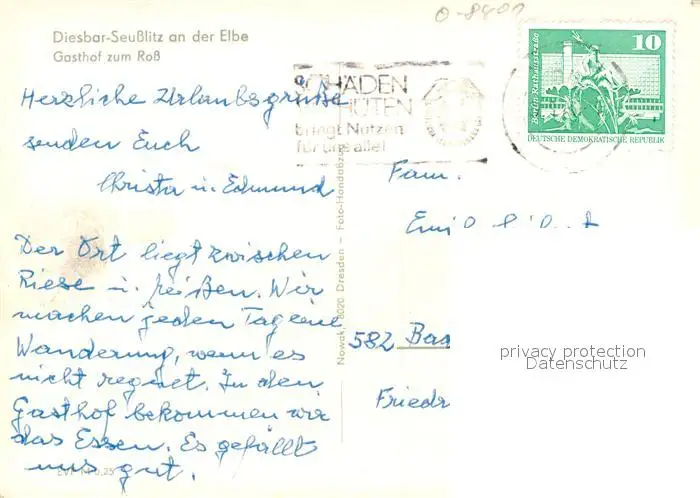 Diesbar-Seußlitz an der Elbe
Gasthof zum Roß
O-8401
SCHÄDEN
HÜTEN
bringt Nutzen
für uns alle!
Berlin-Rathausstraße
10
DEUTSCHE DEMOKRATISCHE REPUBLIK
Herzliche Urlaubsgrüße
senden Euch
Christa u. Edmund
Der Ort liegt zwischen
Riese u. Meißen. Wir
machen jeden Tag eine
Wanderung, wenn es
nicht regnet. In den
Gasthof bekommen wir
das Essen. Es gefällt
uns gut.
EVP M 0,25
Nowak, 8020 Dresden – Foto-Handabzug
Fam.
Emi
582 Bad
Friedr
privacy protection
Datenschutz